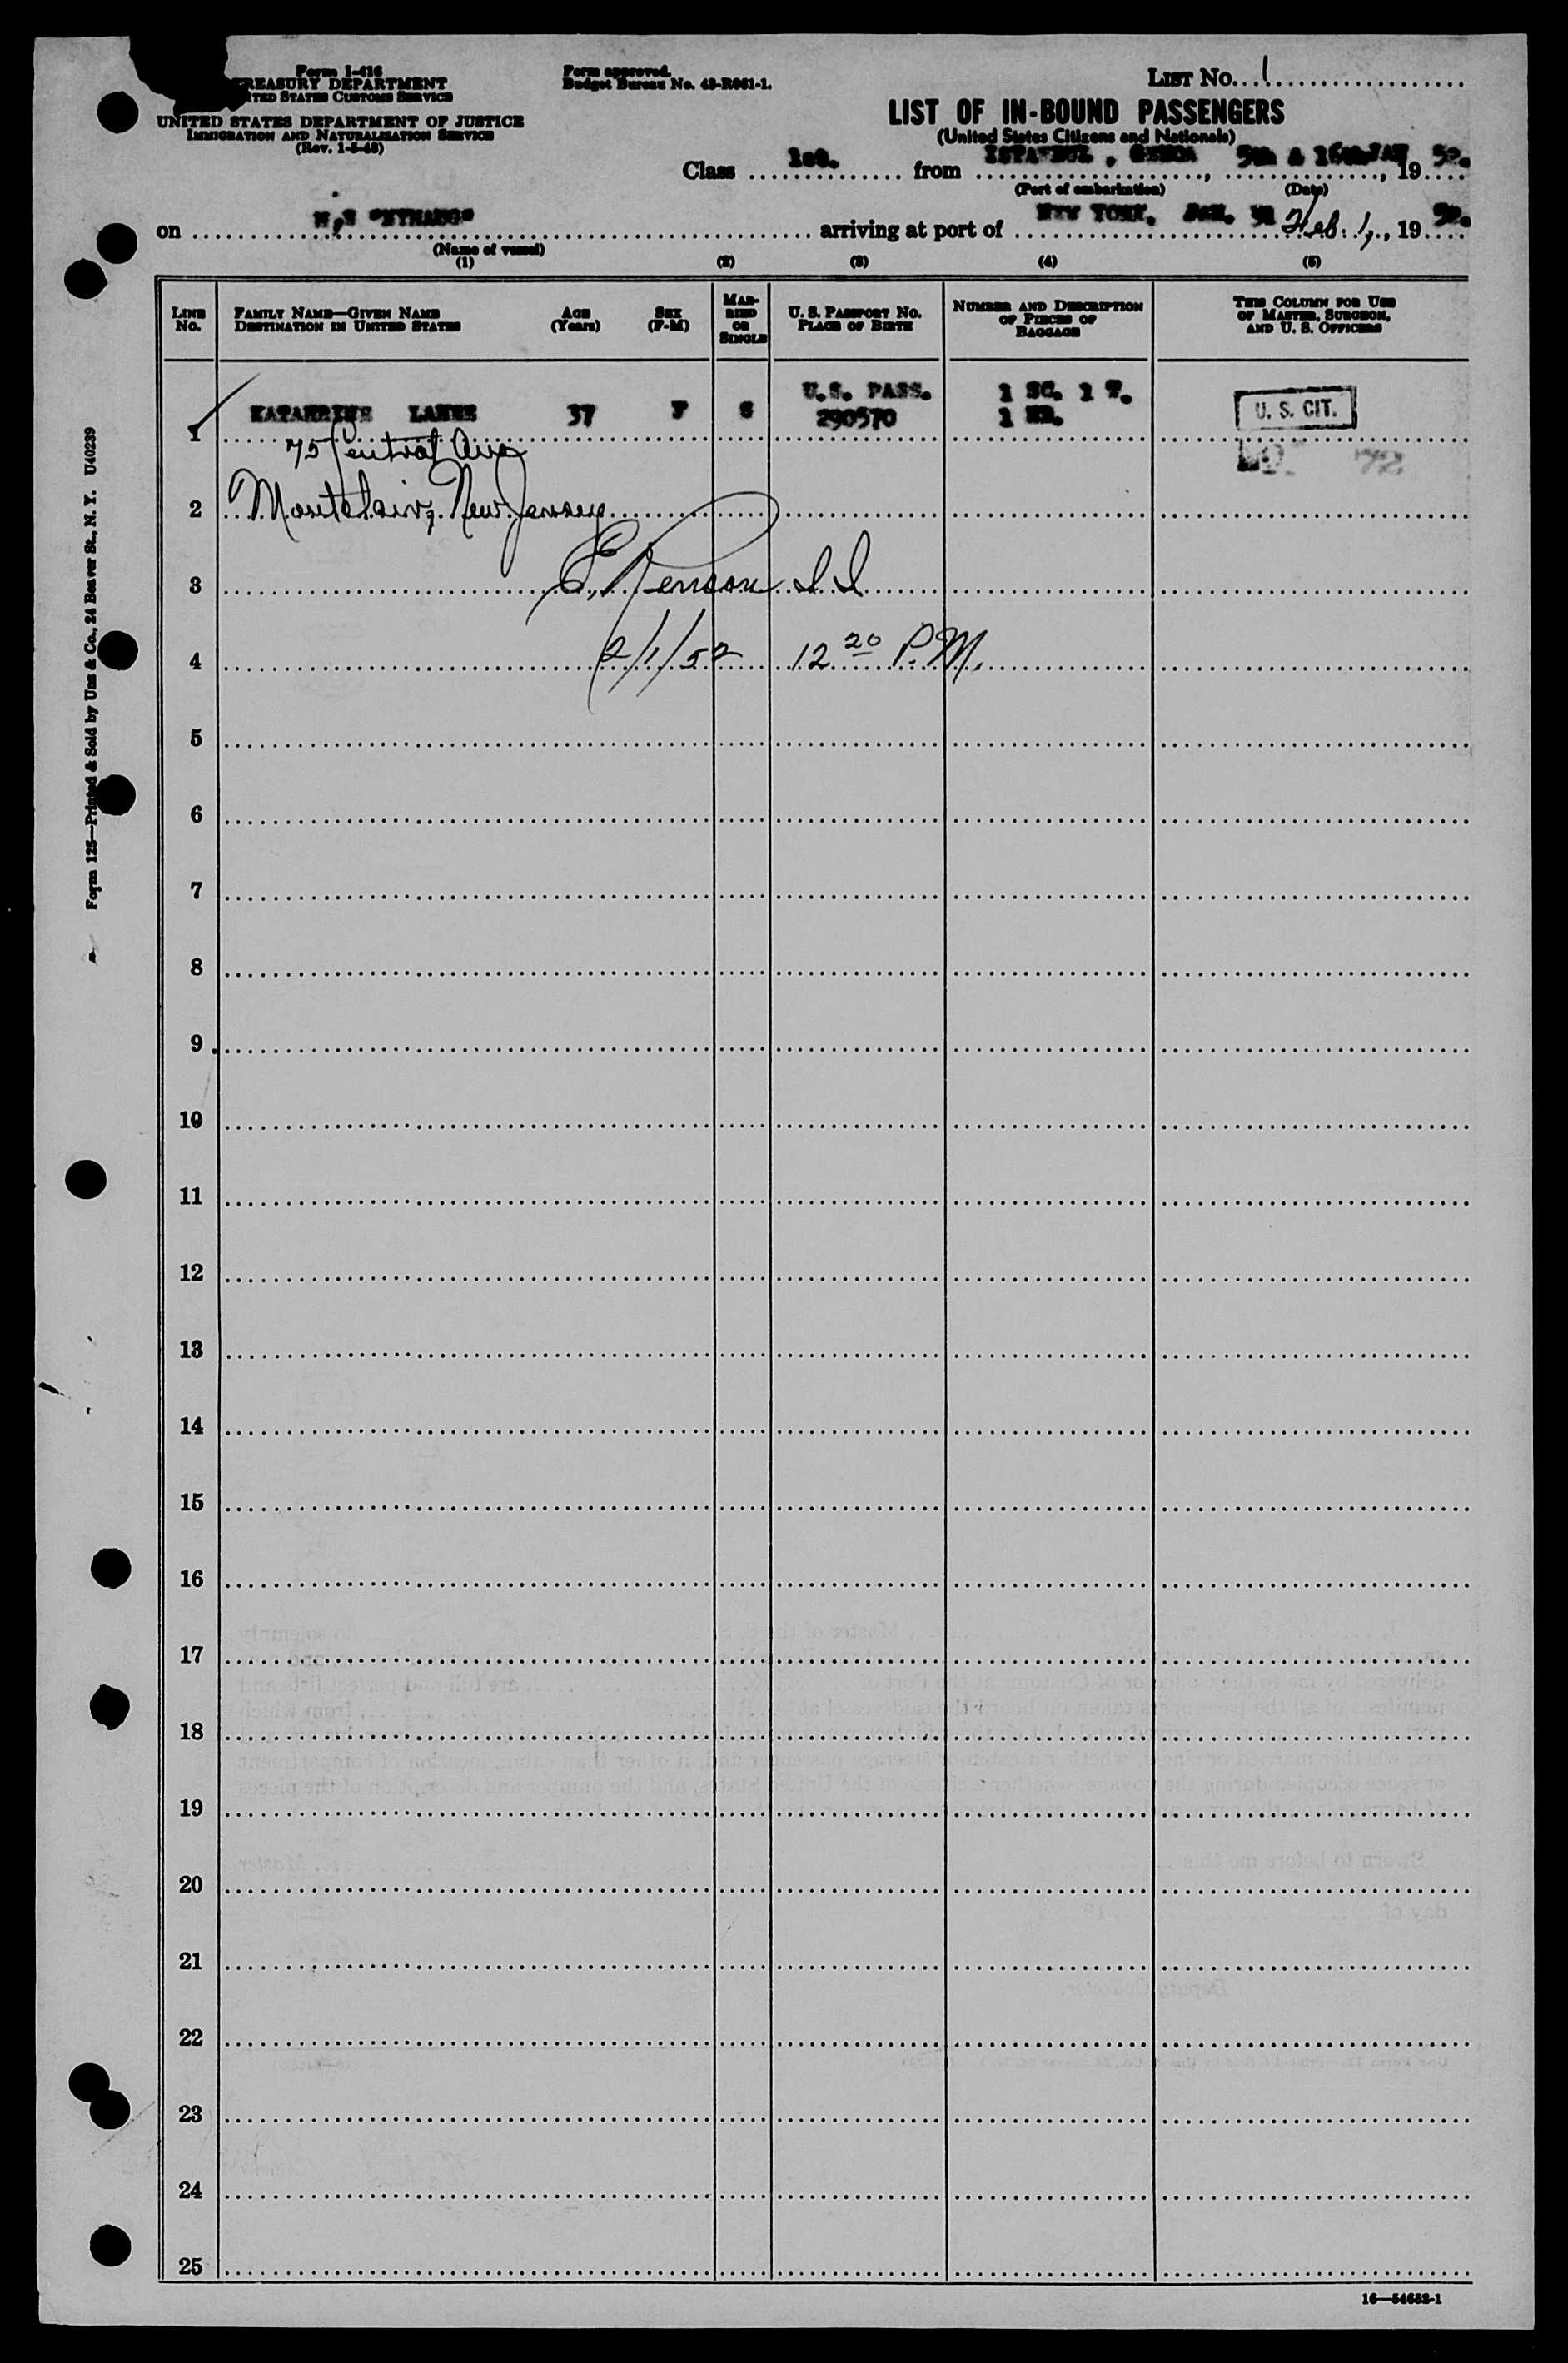 Form I-416
TREASURY DEPARTMENT
UNITED STATES CUSTOMS SERVICE
UNITED STATES DEPARTMENT OF JUSTICE
IMMIGRATION AND NATURALIZATION SERVICE
(Rev. 1-5-48)
Form approved.
Budget Bureau No. 43-R061-1.
LIST NO. 1
LIST OF IN-BOUND PASSENGERS
(United States Citizens and Nationals)
Class 1st. from ISTANBUL , GENOA , 5th & 16th JAN , 19 52.
(Port of embarkation) (Date)
on M/S , arriving at port of NEW YORK. JAN. 31 Feb. 1, , 19 52.
(Name of vessel)
(1) (2) (3) (4) (5)
LINE NO.
FAMILY NAME—GIVEN NAME
DESTINATION IN UNITED STATES
AGE (Years)
SEX (F-M)
MARRIED OR SINGLE
U. S. PASSPORT NO.
PLACE OF BIRTH
NUMBER AND DESCRIPTION OF PIECES OF BAGGAGE
THIS COLUMN FOR USE OF MASTER, SURGEON, AND U. S. OFFICERS
U.S. PASS. 1 SC. 1 T.
1 KATAHRINE 37 F S 290570 1 U. S. CIT.
75 Central Ave
2 Montclair, New Jersey
3 I I
4 2/1/52 12 20 P.M.
5
6
7
8
9
10
11
12
13
14
15
16
17
18
19
20
21
22
23
24
25
16—54652-1
Form 125—Printed & Sold by Unz & Co., 24 Beaver St., N. Y. U40239